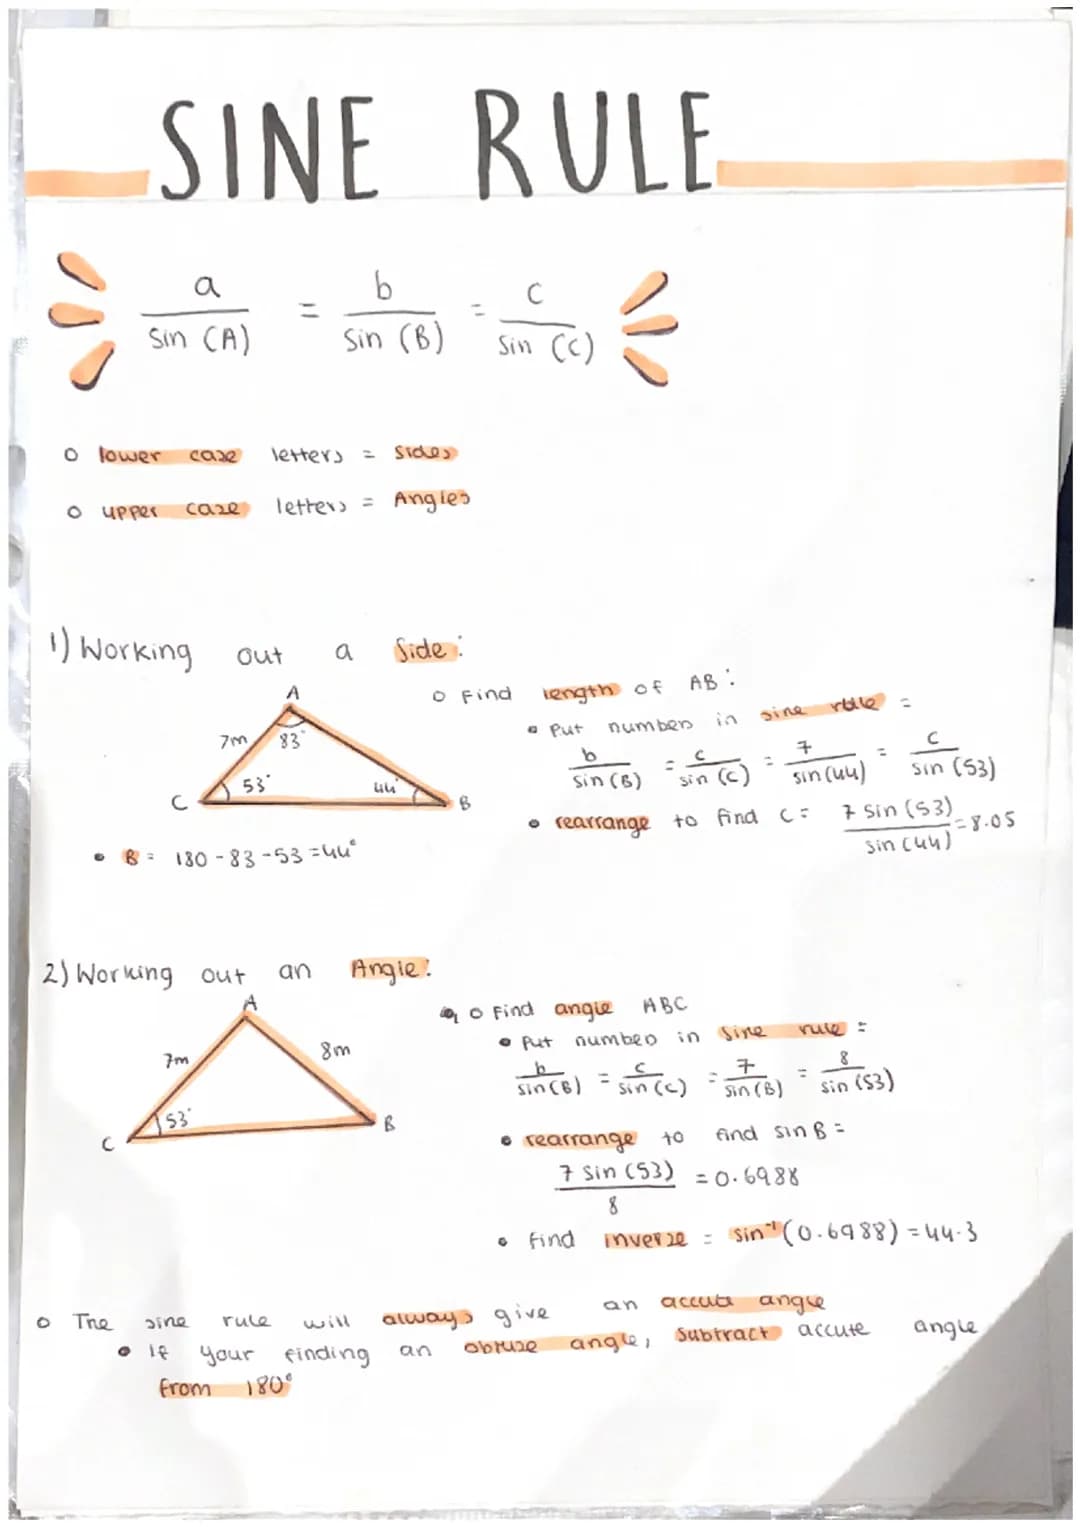 SINE RULE
a/sin (A) = b/sin (B) = c/sin (C)
lower case letters = sides
upper case letters = Angles
1) Working out a Side:
A
7m 83°
C 53° 44° B
B = 180 - 83 - 53 = 44°
Find length of AB:
Put numbers in sine rule =
b/sin (B) = c/sin (C) = 7/sin (44) = c/sin (53)
rearrange to find c = 7 sin (53)/sin (44) = 8.05
2) Working out an Angle:
A
7m 8m
C 53° B
Find angle ABC
Put numbers in sine rule =
b/sin (B) = c/sin (c) = 7/sin (B) = 8/sin (53)
rearrange to find sin B =
7 sin (53)/8 = 0.6988
find inverse = sin⁻¹ (0.6988) = 44.3
The sine rule will always give an accute angle
If your finding an obtuse angle, subtract accute angle
from 180°